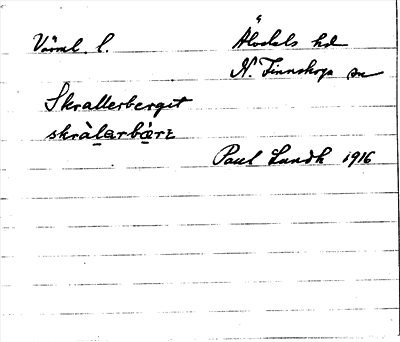 Värml. l. Älvdals hd
N. Finnskoga sn
Skrallerberget
skràlarbært
Paul Lundh 1916